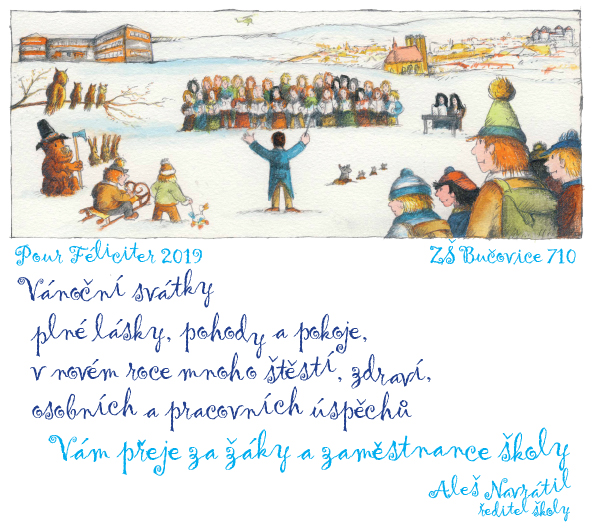 Pour Féliciter 2019 ZŠ Bučovice 710
Vánoční svátky
plné lásky, pohody a pokoje,
v novém roce mnoho štěstí, zdraví,
osobních a pracovních úspěchů
Vám přeje za žáky a zaměstnance školy
Aleš Navrátil
ředitel školy